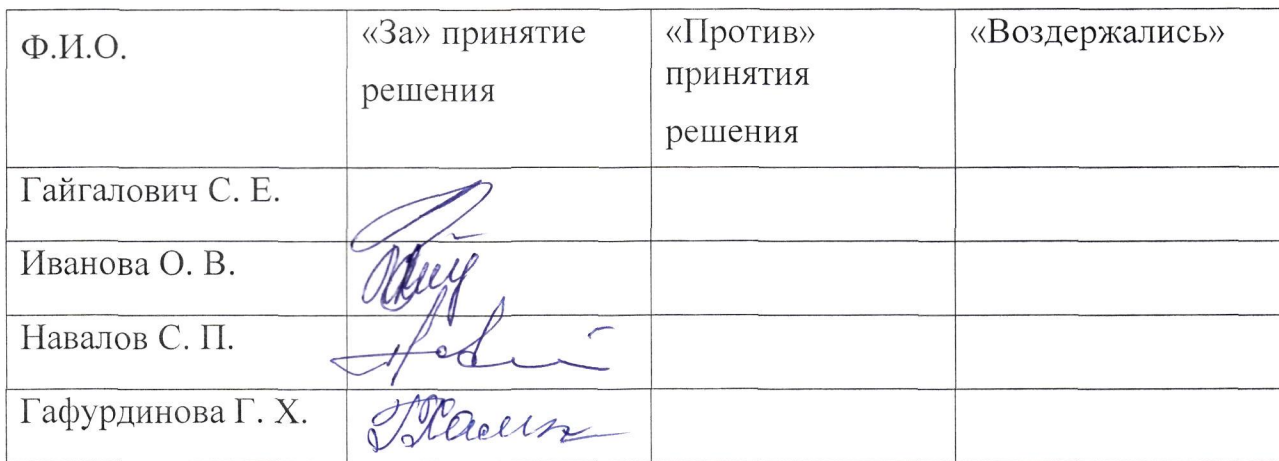 Ф.И.О.
«За» принятие
решения
«Против»
принятия
решения
«Воздержались»
Гайгалович С. Е.
Иванова О. В.
Навалов С. П.
Гафурдинова Г. Х.